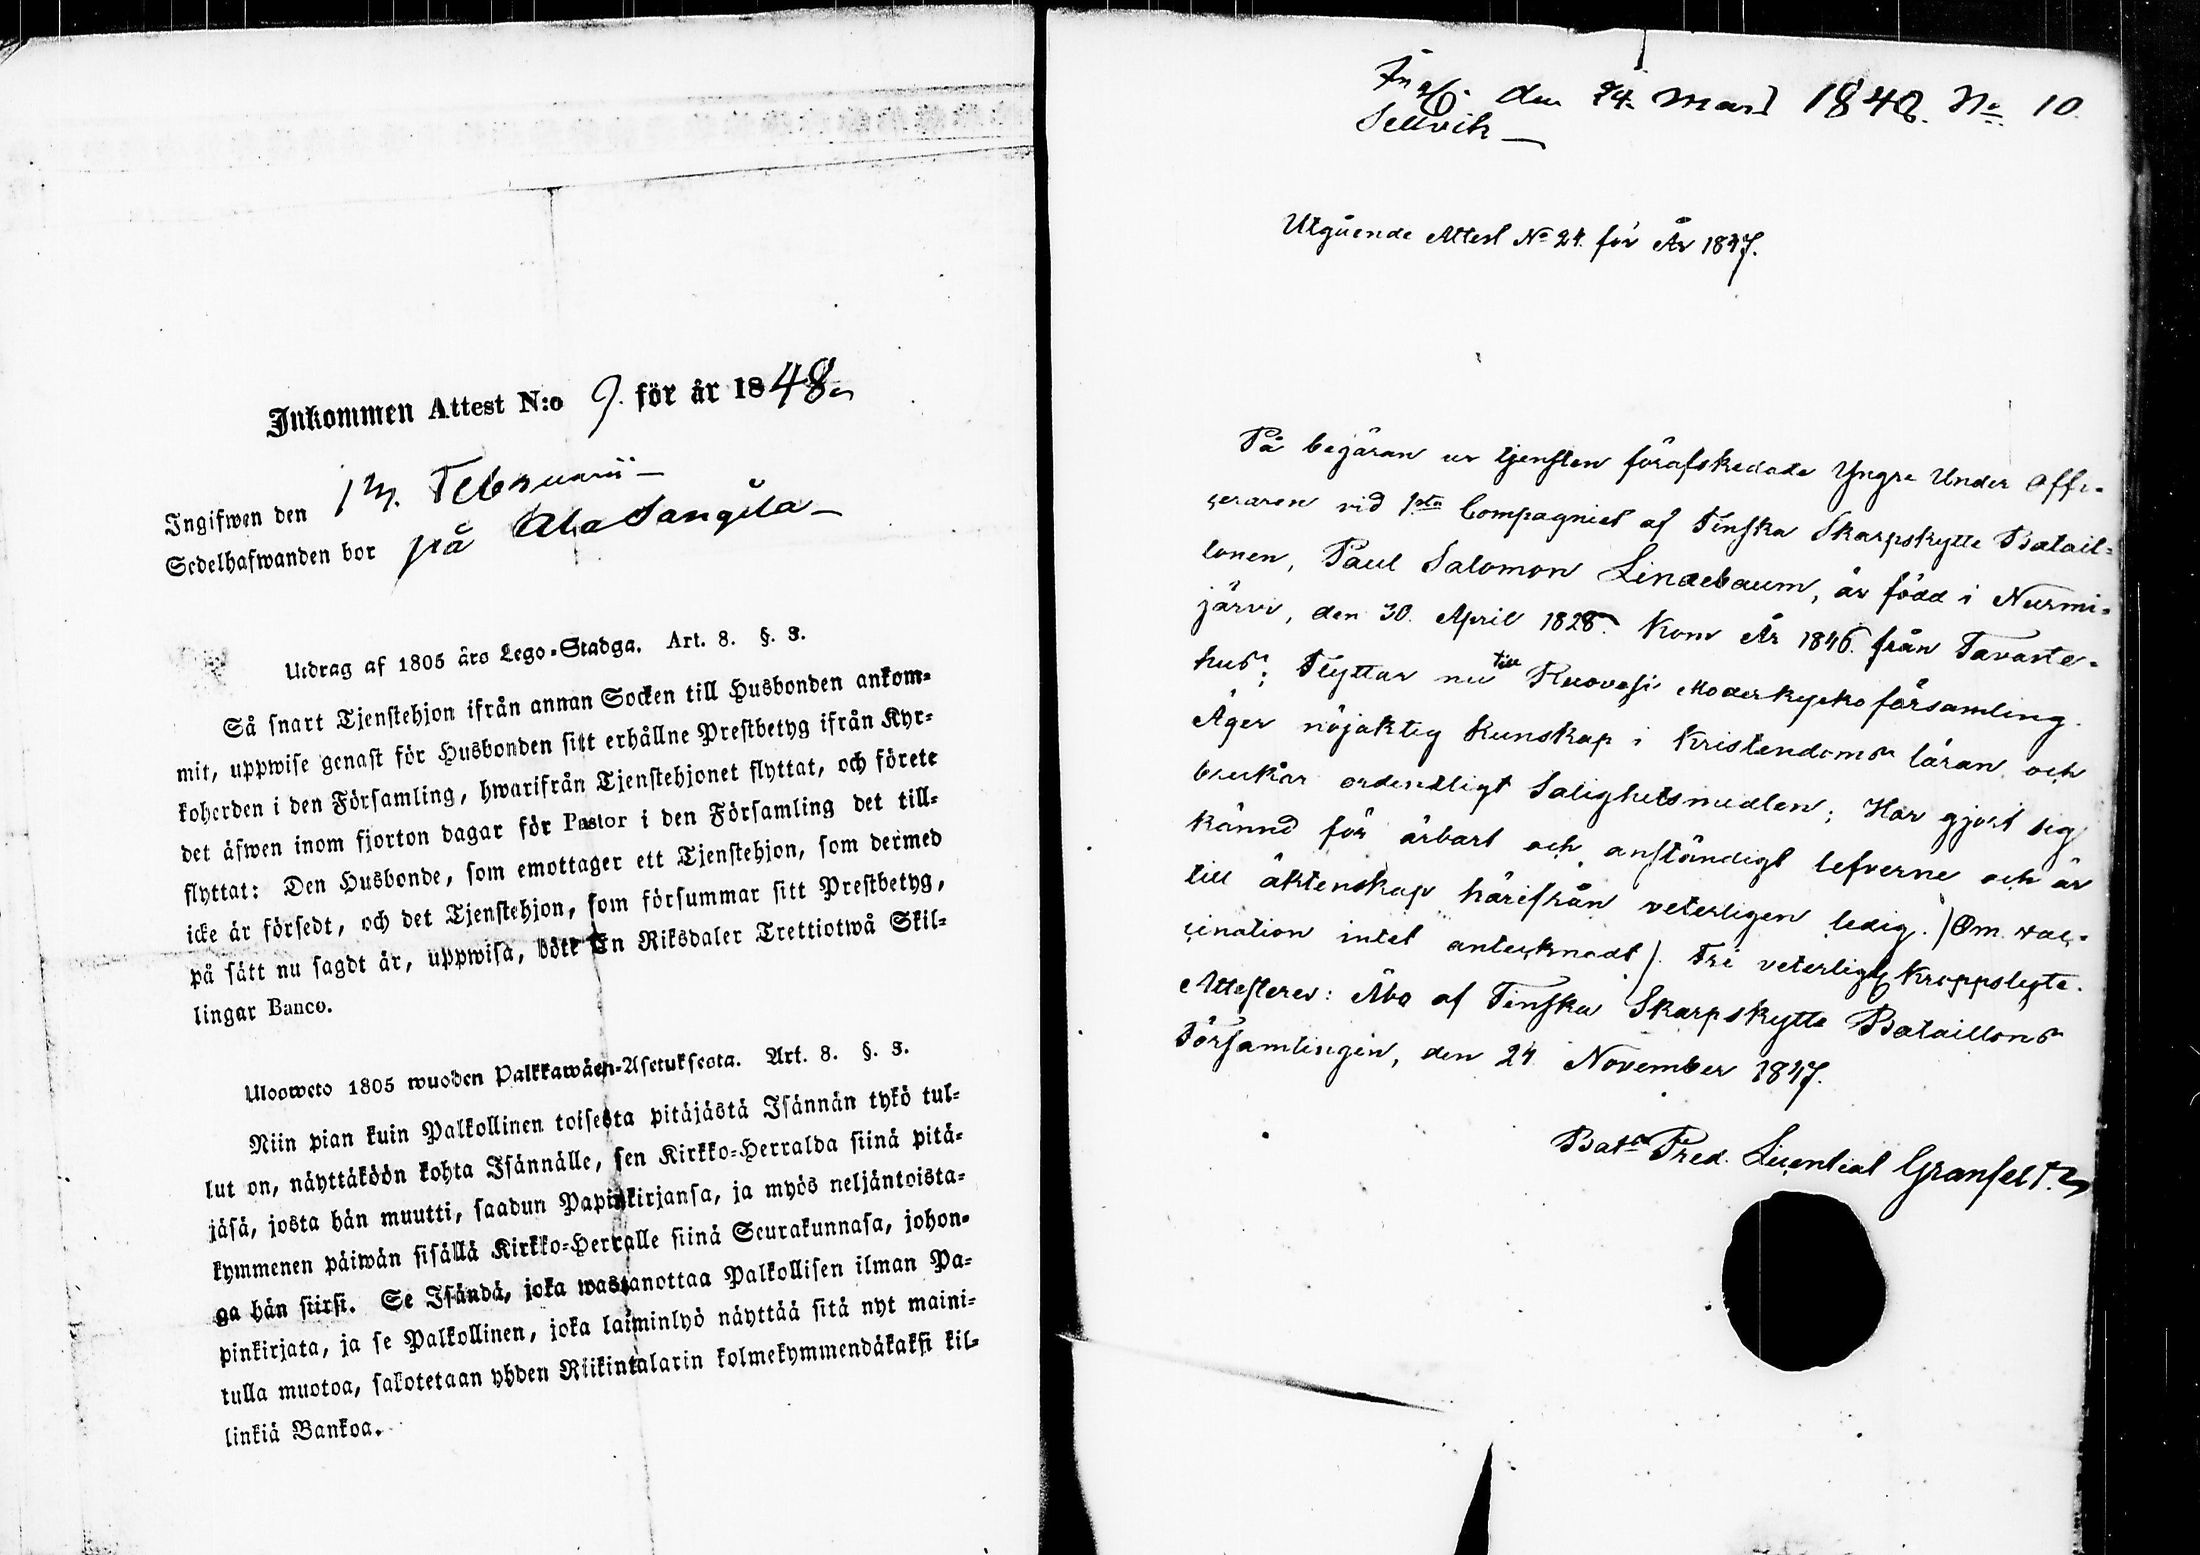 Inkommen Attest N:o 9. för år 1848
Ingifwen den 13. Februarii
Sedelhafwanden bor på Ala Sangila
Utdrag af 1805 års Lego-Stadga. Art. 8. §. 3.
Så snart Tjenstehjon ifrån annan Socken till Husbonden ankom-
mit, uppwise genast för Husbonden sitt erhållne Prestbetyg ifrån Kyr-
koherden i den Församling, hwarifrån Tjenstehjonet flyttat, och förete
det äfwen inom fjorton dagar för Pastor i den Församling det till-
flyttat: Den Husbonde, som emottager ett Tjenstehjon, som dermed
icke är försedt, och det Tjenstehjon, som försummar sitt Prestbetyg,
på sätt nu sagdt är, uppwisa, böte En Riksdaler Trettiotwå Skil-
lingar Banco.
Ulosweto 1805 wuoden Palkkawäen-Asetuksesta. Art. 8. §. 3.
Niin pian kuin Palkollinen toisesta pitäjästä Isännän tykö tul-
lut on, näyttäköön kohta Isännälle, sen Kirkko-Herralda siinä pitä-
jäsä, josta hän muutti, saadun Papinkirjansa, ja myös neljäntoista-
kymmenen päiwän sisällä Kirkko-Herralle siinä Seurakunnasa, johon-
ga hän siirsi. Se Isändä, joka wastanottaa Palkollisen ilman Pa-
pinkirjata, ja se Palkollinen, joka laiminlyö näyttää sitä nyt maini-
tulla muotoa, sakotetaan yhden Riikintalarin kolmekymmendäkaksi kil-
linkiä Bankoa.
Ingf. den 24. Mars 1848. No 10.
Sellvik
Utgående Attest No 24. för År 1847.
På begäran ur tjensten förafskedade Yngre Under Offi-
ceraren vid 1sta Compagniet af Finska Skarpskytte Batail-
lonen, Paul Salomon Lindebaum, är född i Nurmi-
järvi, den 30. April 1828. Kom År 1846. från Tavaste-
hus; Flyttar nu till Ruovesi Moderkyrko församling.
Äger nöjaktig kunskap i Kristendoms läran och
brukar ordentligt Salighetsmedlen; Har gjort sig
kännd för ärbart och anständigt lefverne och är
till äktenskap härifrån veterligen ledig. (Om vac-
cination intet antecknadt). Fri veterligt kroppslyte.
Attesteras: Åbo af Finska Skarpskytte Bataillons
Församlingen, den 24 November 1847.
Batns Pred. Granfelt.